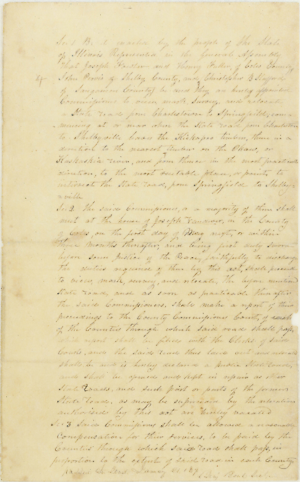 Sec 1 Be it enacted by the people of the State
of Illinois Represented in the General Assembly
That Joseph and Henry of Coles County
John of Shelby County, and
of Sangamon County be and they are hereby appointed
Commissioners to view, mark, survey and relocate
a State road from Charleston to Springfield, com-
mencing at or near where the State road from Charleston
to Shelbyville leaves the timber, thence in a
direction to the nearest timber on the Okaw, or
Kaskaskia river, and from thence in the most practical
direction, to the most suitable place, or points, to
intersect the State road, from Springfield to Shelby-
ville
Sec 2 The said Commissioners, or a majority of them shall
meet at the house of Joseph in the County
of Coles on the first day of next, or within
three months thereafter, and being first duly sworn
before some Justice of the Peace, faithfully to discharge
the duties required of them by this act, shall proceed
to view, mark, survey, and relocate,
State road, and as soon as practicable thereafter
the said Commissioners, shall make a report of their
proceedings to the County Commissioners Court, of each
of the Counties through which said road shall pass,
which report shall be filed with the Clerks of said
Courts, and the said road thus laid out
shall be and is hereby declared a public State road,
and shall be opened and kept in repair as other
State Roads, and such part or parts of the present
State road, as may be superseded by the relocation
authorized by this act are hereby vacated
Sec 3 Said Commissioners shall be allowed a reasonable
compensation for their services, to be paid by the
Counties through which said road shall pass, in
proportion to the extent of said road in each County